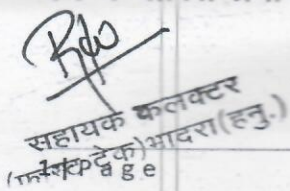 सहायक कलक्टर
(फास्ट ट्रेक) भादरा (हनु.)
1 | P a g e